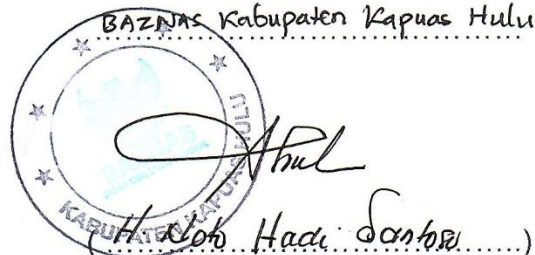 BAZNAS Kabupaten Kapuas Hulu
BAZNAS
KABUPATEN KAPUAS HULU
( H. Noto Hadi Santoso )